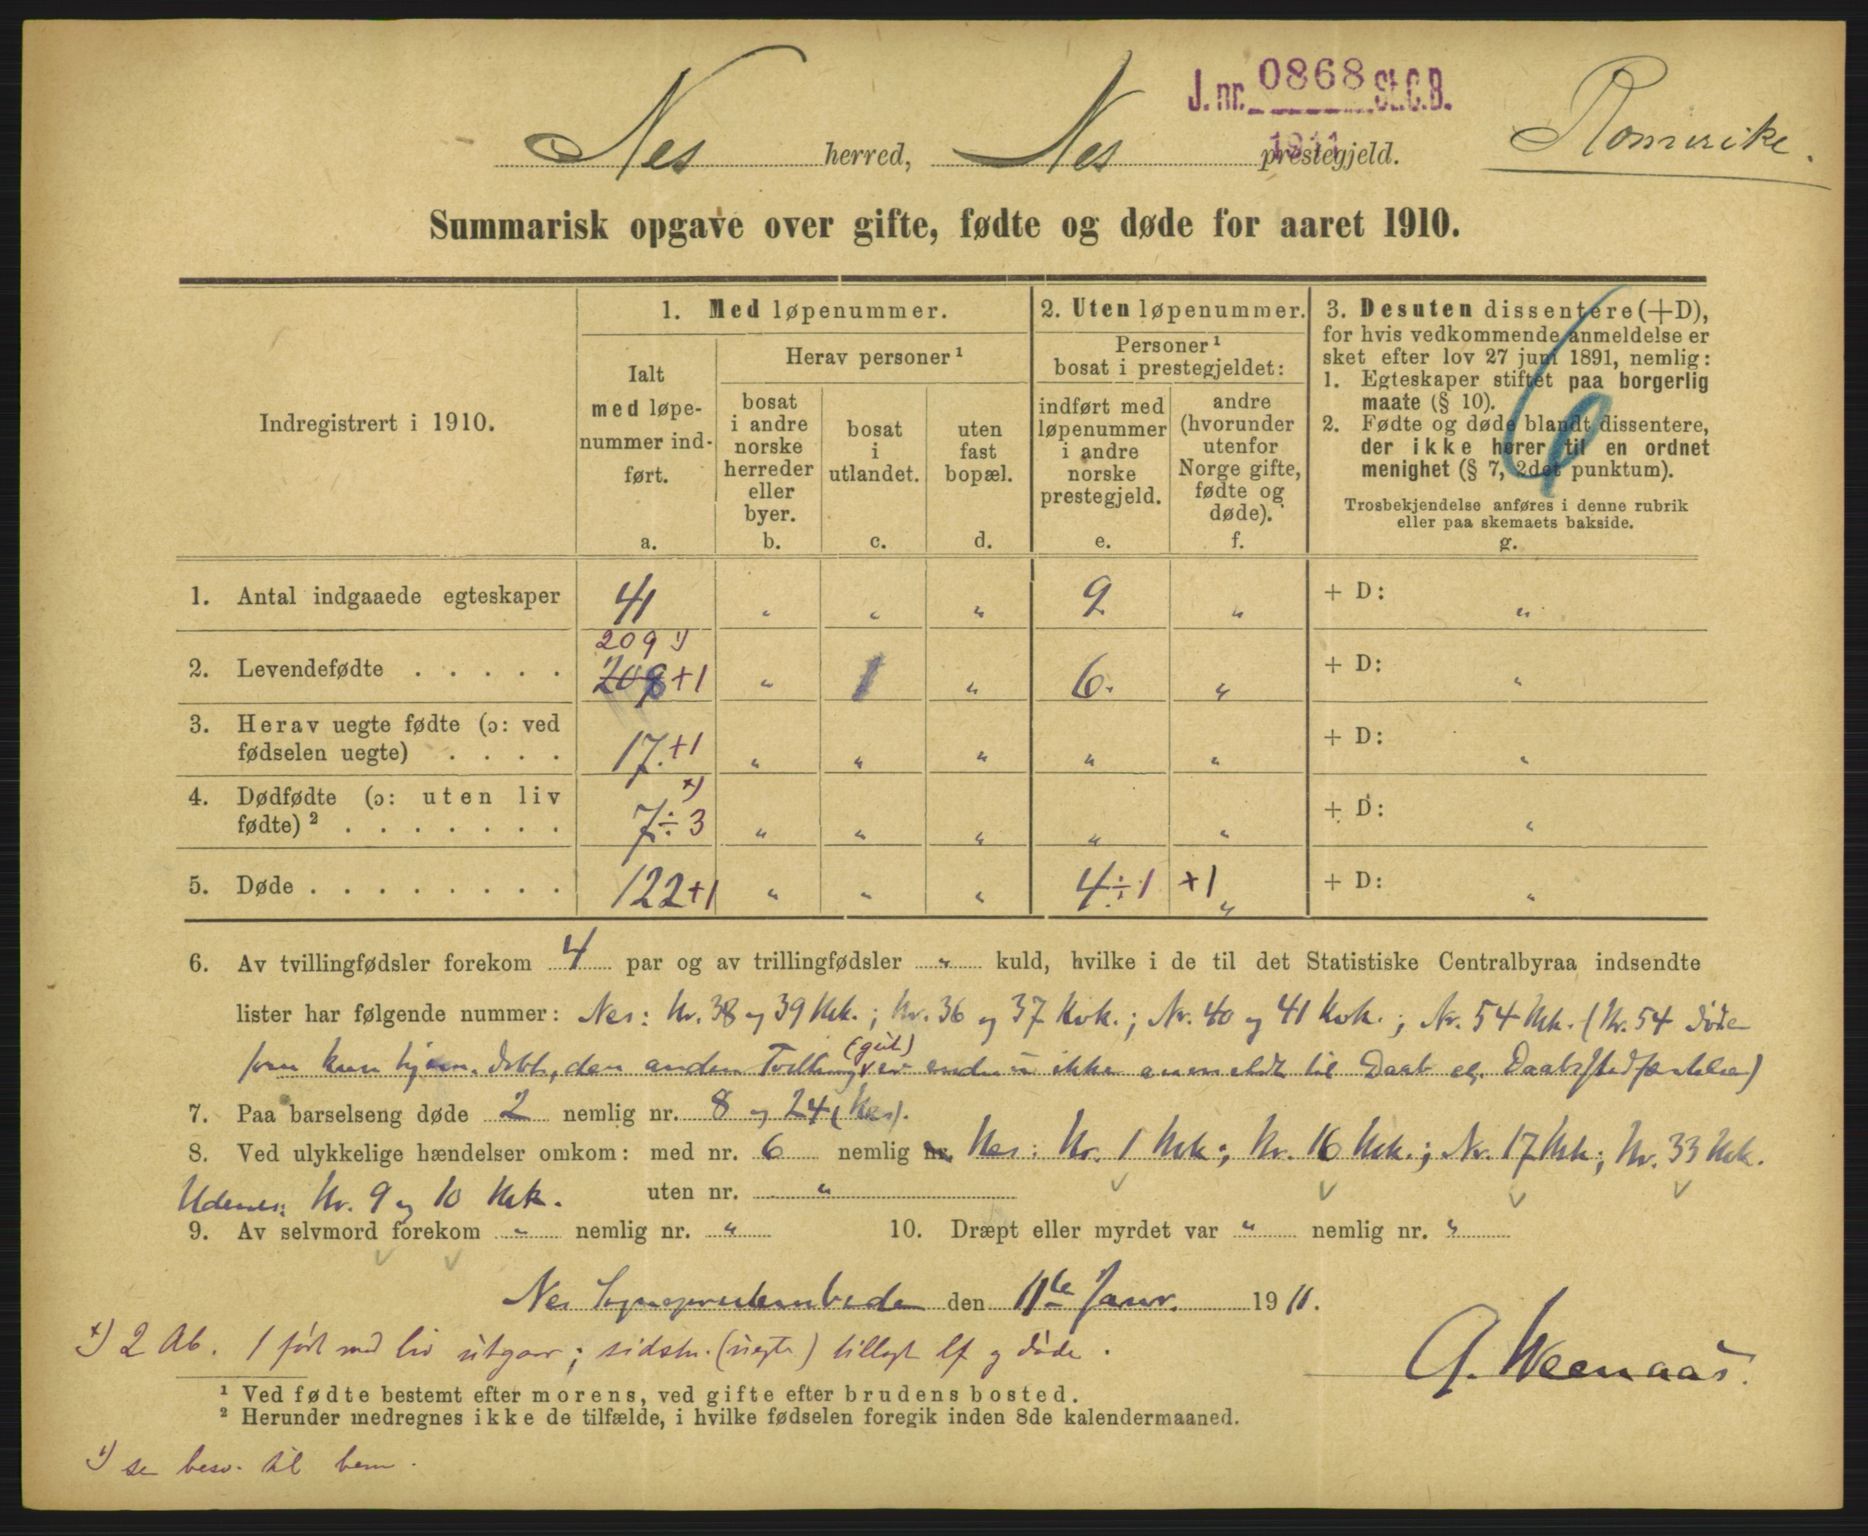 J. nr. 0868 St.C.B.
1911
Romerike.
Nes herred, Nes prestegjeld.
Summarisk opgave over gifte, fødte og døde for aaret 1910.
Indregistrert i 1910.
1. Med løpenummer.
Ialt med løpenummer indført.
a.
Herav personer ¹
bosat i andre norske herreder eller byer.
b.
bosat i utlandet.
c.
uten fast bopæl.
d.
2. Uten løpenummer.
Personer ¹ bosat i prestegjeldet:
indført med løpenummer i andre norske prestegjeld.
e.
andre (hvorunder utenfor Norge gifte, fødte og døde).
f.
3. Desuten dissentere (+D),
for hvis vedkommende anmeldelse er
sket efter lov 27 juni 1891, nemlig:
1. Egteskaper stiftet paa borgerlig
maate (§ 10).
2. Fødte og døde blandt dissentere,
der ikke hører til en ordnet
menighet (§ 7, 2det punktum).
Trosbekjendelse anføres i denne rubrik
eller paa skemaets bakside.
g.
1. Antal indgaaede egteskaper 41 " " " 9 " + D: "
209 ¹)
2. Levendefødte . . . . . 208 +1 " 1 " 6. " + D: "
3. Herav uegte fødte (ɔ: ved
fødselen uegte) . . . . 17. +1 " " " " " + D: "
4. Dødfødte (ɔ: uten liv
fødte) ² . . . . . . . 7 ÷ 3 ˣ) " " " " " + D: "
5. Døde . . . . . . . . 122 +1 " " " 4 ÷ 1 +1 " + D: "
6. Av tvillingfødsler forekom 4 par og av trillingfødsler " kuld, hvilke i de til det Statistiske Centralbyraa indsendte
lister har følgende nummer: Nes: Nr. 38 og 39 Mk.; Nr. 36 og 37 Kvk.; Nr. 40 og 41 Kvk.; Nr. 54 Mk. (Nr. 54 døde
(gut)
kun den anden Tvilling er endnu ikke anmeldt til Daab el.
7. Paa barselseng døde 2 nemlig nr. 8 og 24 (Nes).
8. Ved ulykkelige hændelser omkom: med nr. 6 nemlig nr. Nes: Nr. 1 Mk.; Nr. 16 Mk.; Nr. 17 Mk.; Nr. 33 Mk.
Udenes: Nr. 9 og 10 Mk. uten nr. "
9. Av selvmord forekom " nemlig nr. " 10. Dræpt eller myrdet var " nemlig nr. "
Nes Sogneprestembede den 11te Janr. 1911.
ˣ) 2 Ab. 1 født med liv utgaar; sidstn. (uegte) tillagt lf og døde.
G. Weenaas.
¹ Ved fødte bestemt efter morens, ved gifte efter brudens bosted.
² Herunder medregnes ikke de tilfælde, i hvilke fødselen foregik inden 8de kalendermaaned.
¹) se besv. til bem.